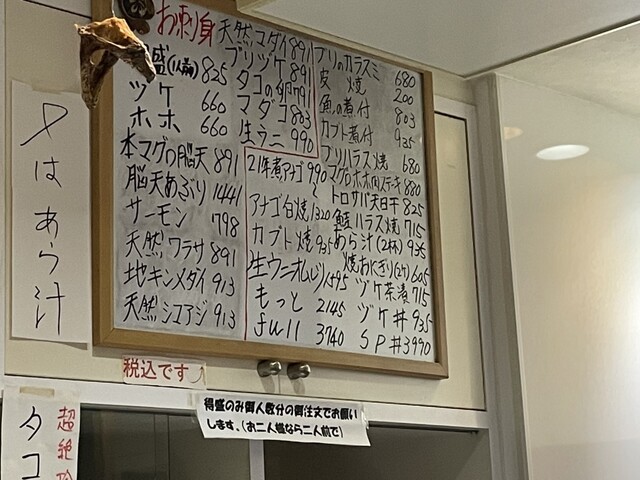 お刺身
盛(1人前) 825
ヅケ 660
ホホ 660
本マグロ脳天 891
脳天あぶり 1441
サーモン 798
天然ワラサ 891
地キンメダイ 913
天然シマアジ 913
天然コダイ 891
ブリヅケ 891
タコの卵 791
マダコ 803
生ウニ 990
21年煮アナゴ 990〜
アナゴ白焼 1320
カブト焼 935
生ウニオムレツ 1595
もっと 2145
full 3740
ブリのカラスミ 680
皮焼 200
魚の煮付 803
カブト煮付 935
ブリハラス焼 680
マグロホホ肉ステーキ 880
トロサバ天日干 825
鮭ハラス焼 715
あら汁(2杯) 935
焼おにぎり(2ケ) 605
ヅケ茶漬 715
ヅケ丼 935
SP丼 3990
はあら汁
税込です
得盛のみ御人数分の御注文でお願い
します。(お二人様なら二人前で)
超絶
タコ